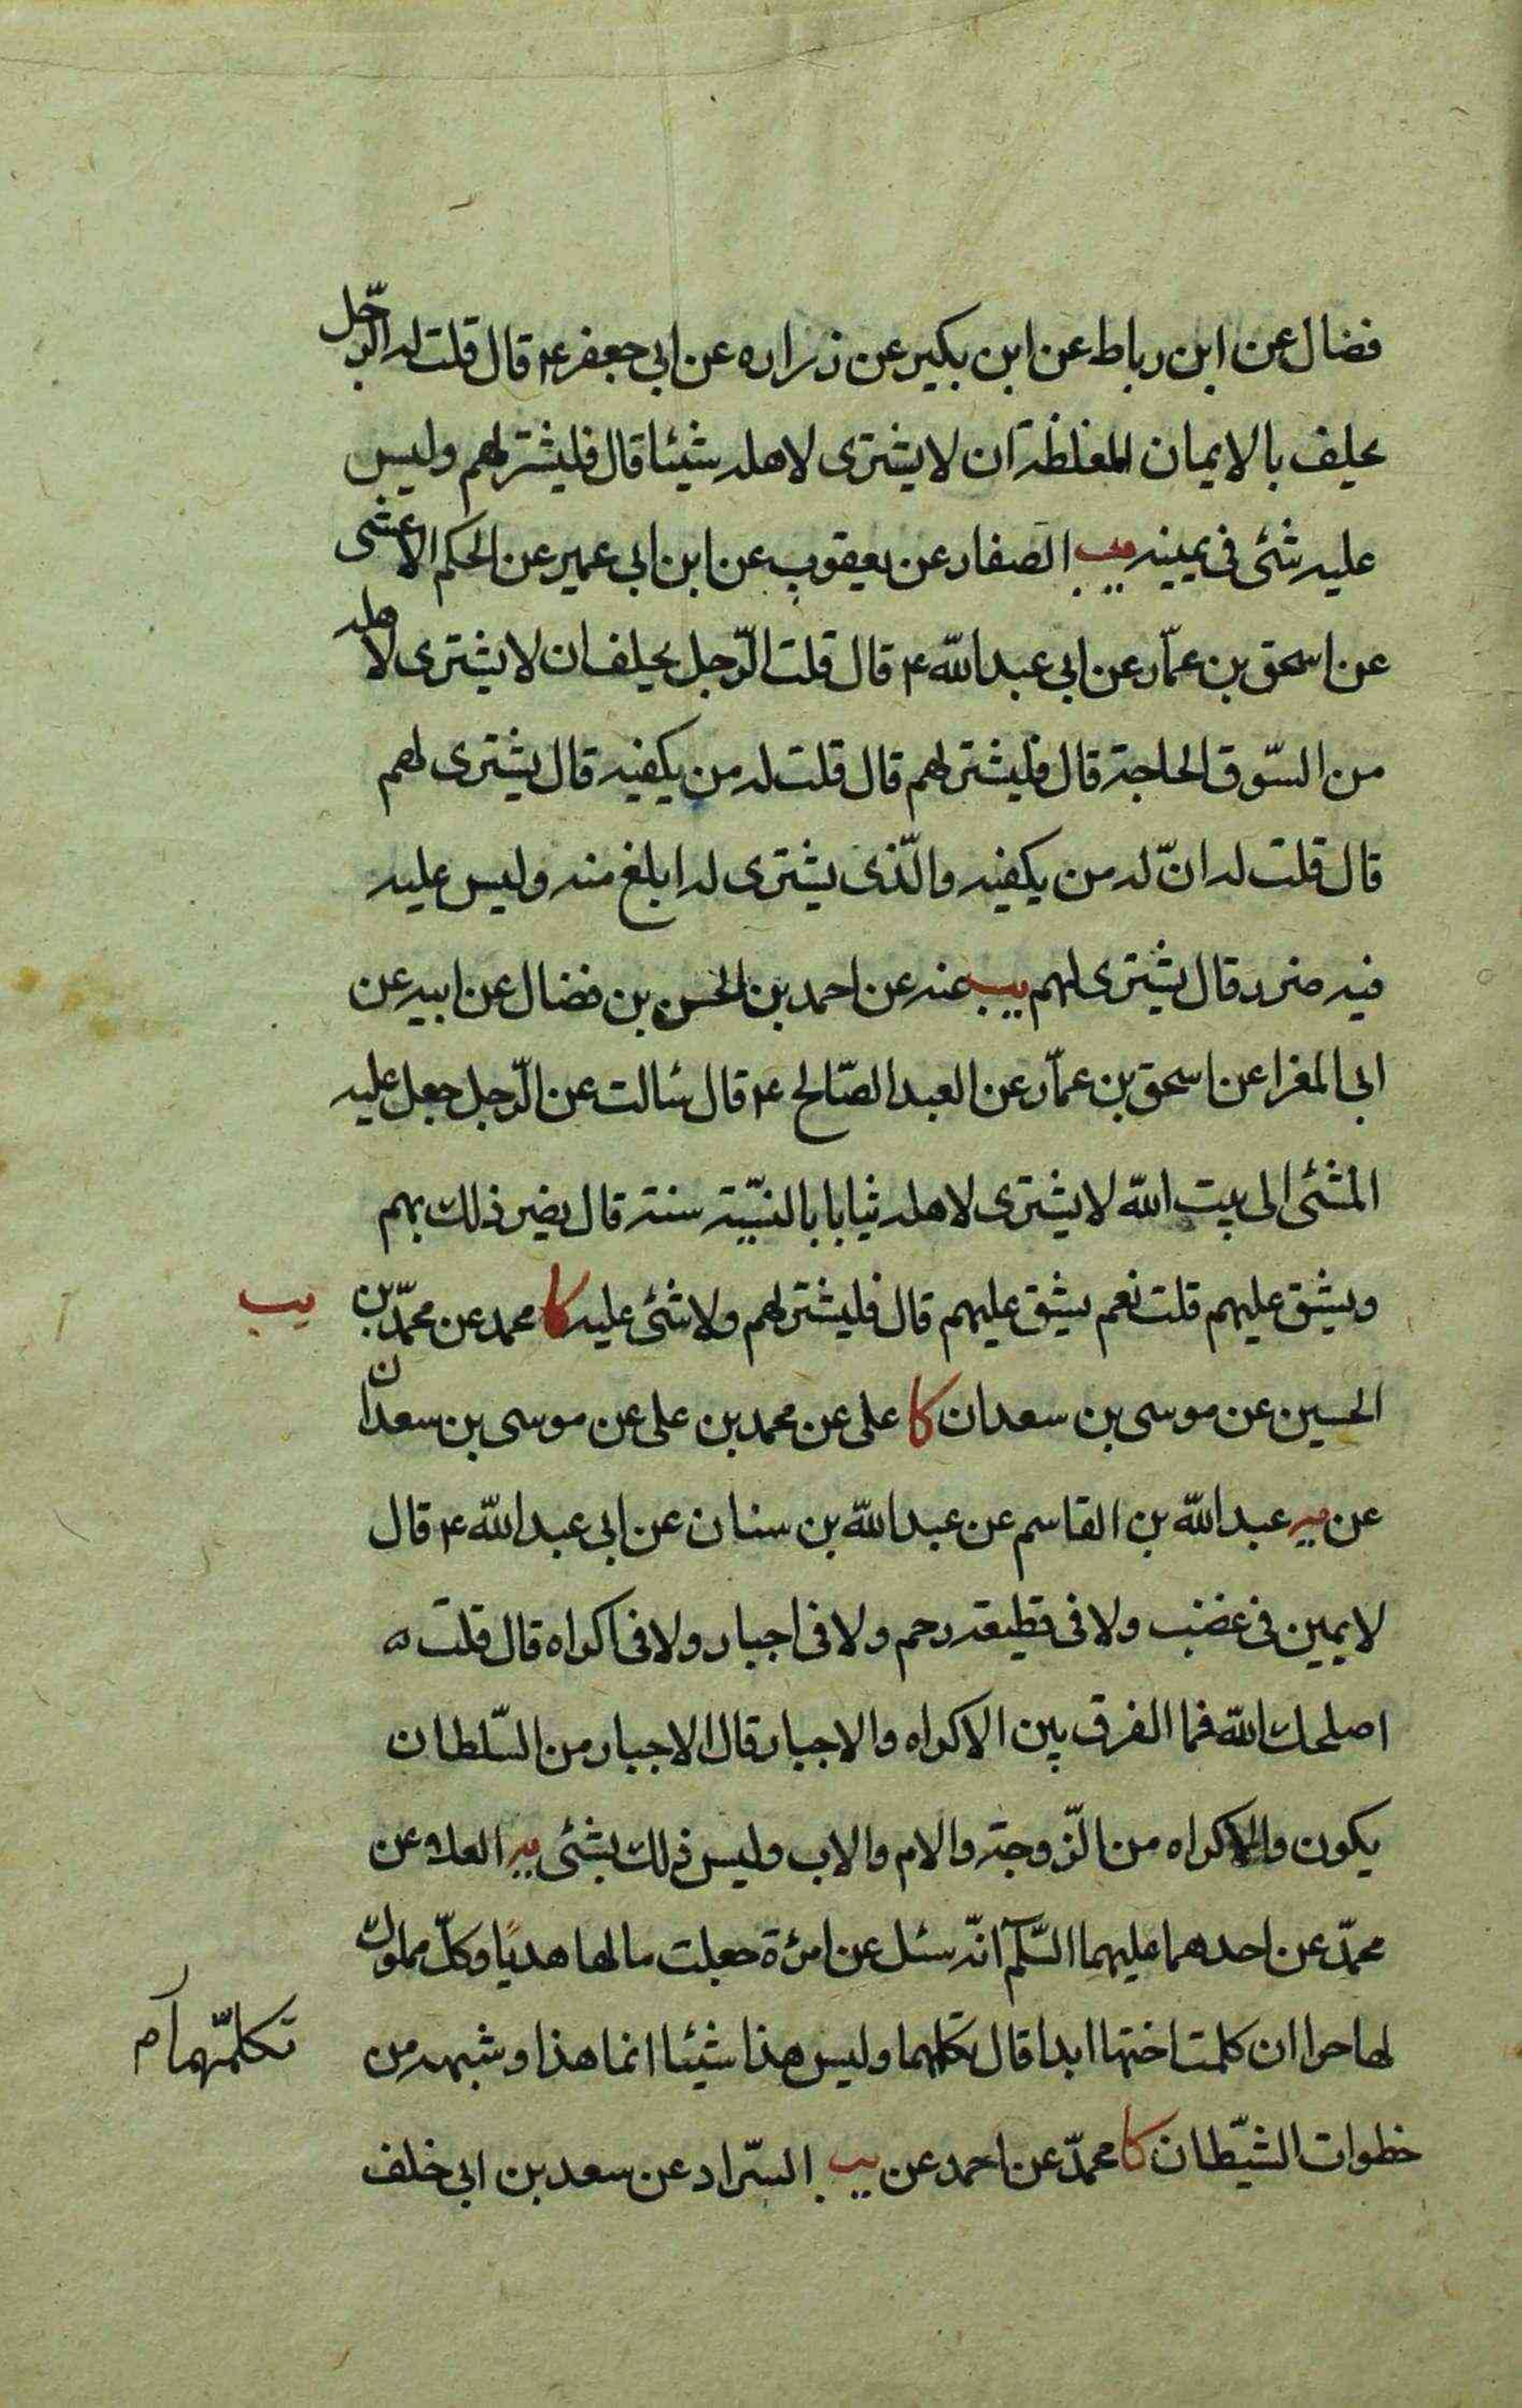 فضال عن ابن رباط عن ابن بكير عن زراره عن ابى جعفر ع قال قلت له الرّجل
يحلف بالايمان المغلظة ان لا يشترى لاهله شيئا قال فليشتر لهم وليس
عليه شئ فى يمينه يب الصفار عن يعقوب عن ابن ابى عمير عن الحكم الاعشى
عن اسحق بن عمّار عن ابى عبد اللّه ع قال قلت الرّجل يحلف ان لا يشترى لاهله
من السّوق الحاجة قال فليشتر لهم قال قلت له من يكفيه قال يشترى لهم
قال قلت له انّ له من يكفيه والّذى يشترى له ابلغ منه وليس عليه
فيه ضرر قال يشترى لهم يب عنه عن احمد بن الحسن بن فضال عن ابيه عن
ابى المغرا عن اسحق بن عمّار عن العبد الصّالح ع قال سئالت عن الرّجل جعل عليه
المشئ الى بيت اللّه لا يشترى لاهله ثيابا بالنسّيّة سنة قال يضر ذلك بهم
ويشق عليهم قلت نعم يشق عليهم قال فليشتر لهم ولا شئ عليه كا محمد عن محمّد بن
يب
الحسين عن موسى بن سعدان كا على عن محمد بن على عن موسى بن سعدان
عن يه عبد اللّه بن القاسم عن عبد اللّه بن سنان عن ابى عبد اللّه ع قال
لا يمين فى غضب ولا فى قطيعة رحم ولا فى اجبار ولا فى اكراه قال قلت
اصلحك اللّه فما الفرق بين الاكراه والاجبار قال الاجبار من السّلطان
يكون والاكراه من الزّوجة والام والاب وليس ذلك بشئ يه العلا عن
محمّد عن احدهما عليهما السّلم انّه سئل عن امرئة جعلت مالها هديًا وكلّ مملوك
لها حرا ان كلمت اختها ابدا قال تكلمها وليس هذا شيئا انما هذا وشبهه من
تكلّمهما
خطوات الشيّطان كا محمّد عن احمد عن يب السّراد عن سعد بن ابى خلف